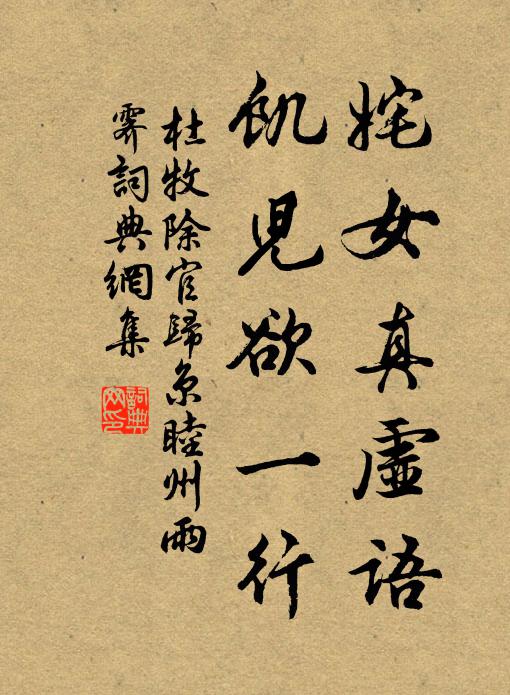 姹女真虛語
飢兒欲一行
杜牧除官歸京睦州雨
霽詞典網集
詞典
网印